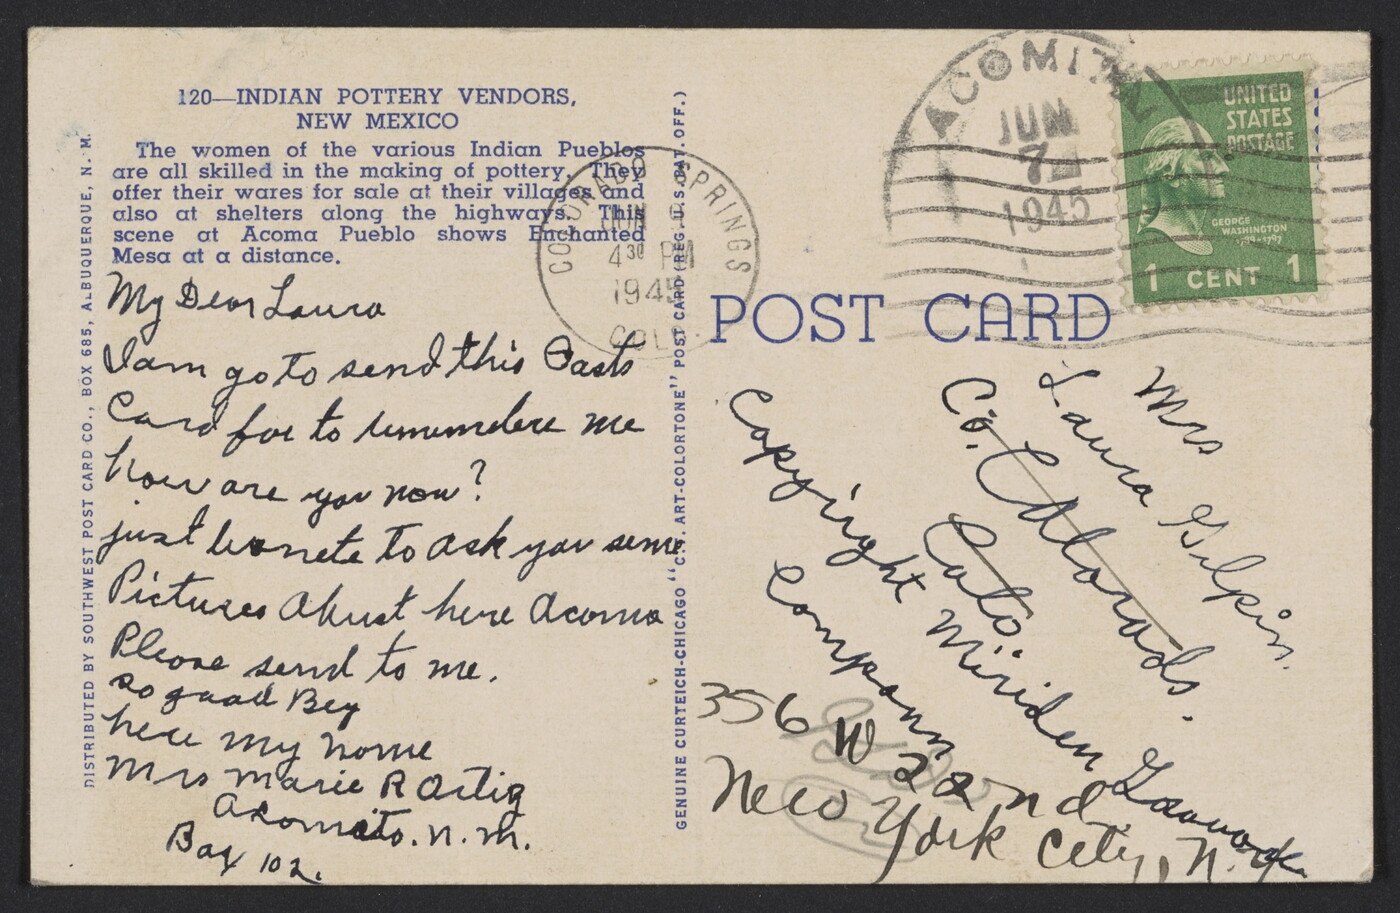 120—INDIAN POTTERY VENDORS,
NEW MEXICO
The women of the various Indian Pueblos
are all skilled in the making of pottery. They
offer their wares for sale at their villages and
also at shelters along the highways. This
scene at Acoma Pueblo shows Enchanted
Mesa at a distance.
My Dear Laura
I am go to send this Pasts
Card for to rememdere me
how are you now?
just to ask you some
Pictures Akust here Acoma
Please send to me.
so good Bey
here my nome
Mrs Marie R Ortiz
Acomito. N. M.
Box 102.
DISTRIBUTED BY SOUTHWEST POST CARD CO., BOX 685, ALBUQUERQUE, N. M.
GENUINE CURTEICH-CHICAGO "C.T. ART-COLORTONE" POST CARD (REG. U. S. PAT. OFF.)
COLORADO SPRINGS
JUN 9
4 30 PM
1945
COLO.
POST CARD
ACOMITA
JUN
7
1945
UNITED
STATES
POSTAGE
GEORGE
WASHINGTON
1789-1797
1 CENT 1
Mrs
Laura Gilpin.
Co. Colorado.
Copyright Miriden Gravure
Company
356 W 22nd
New York City, N.Y.